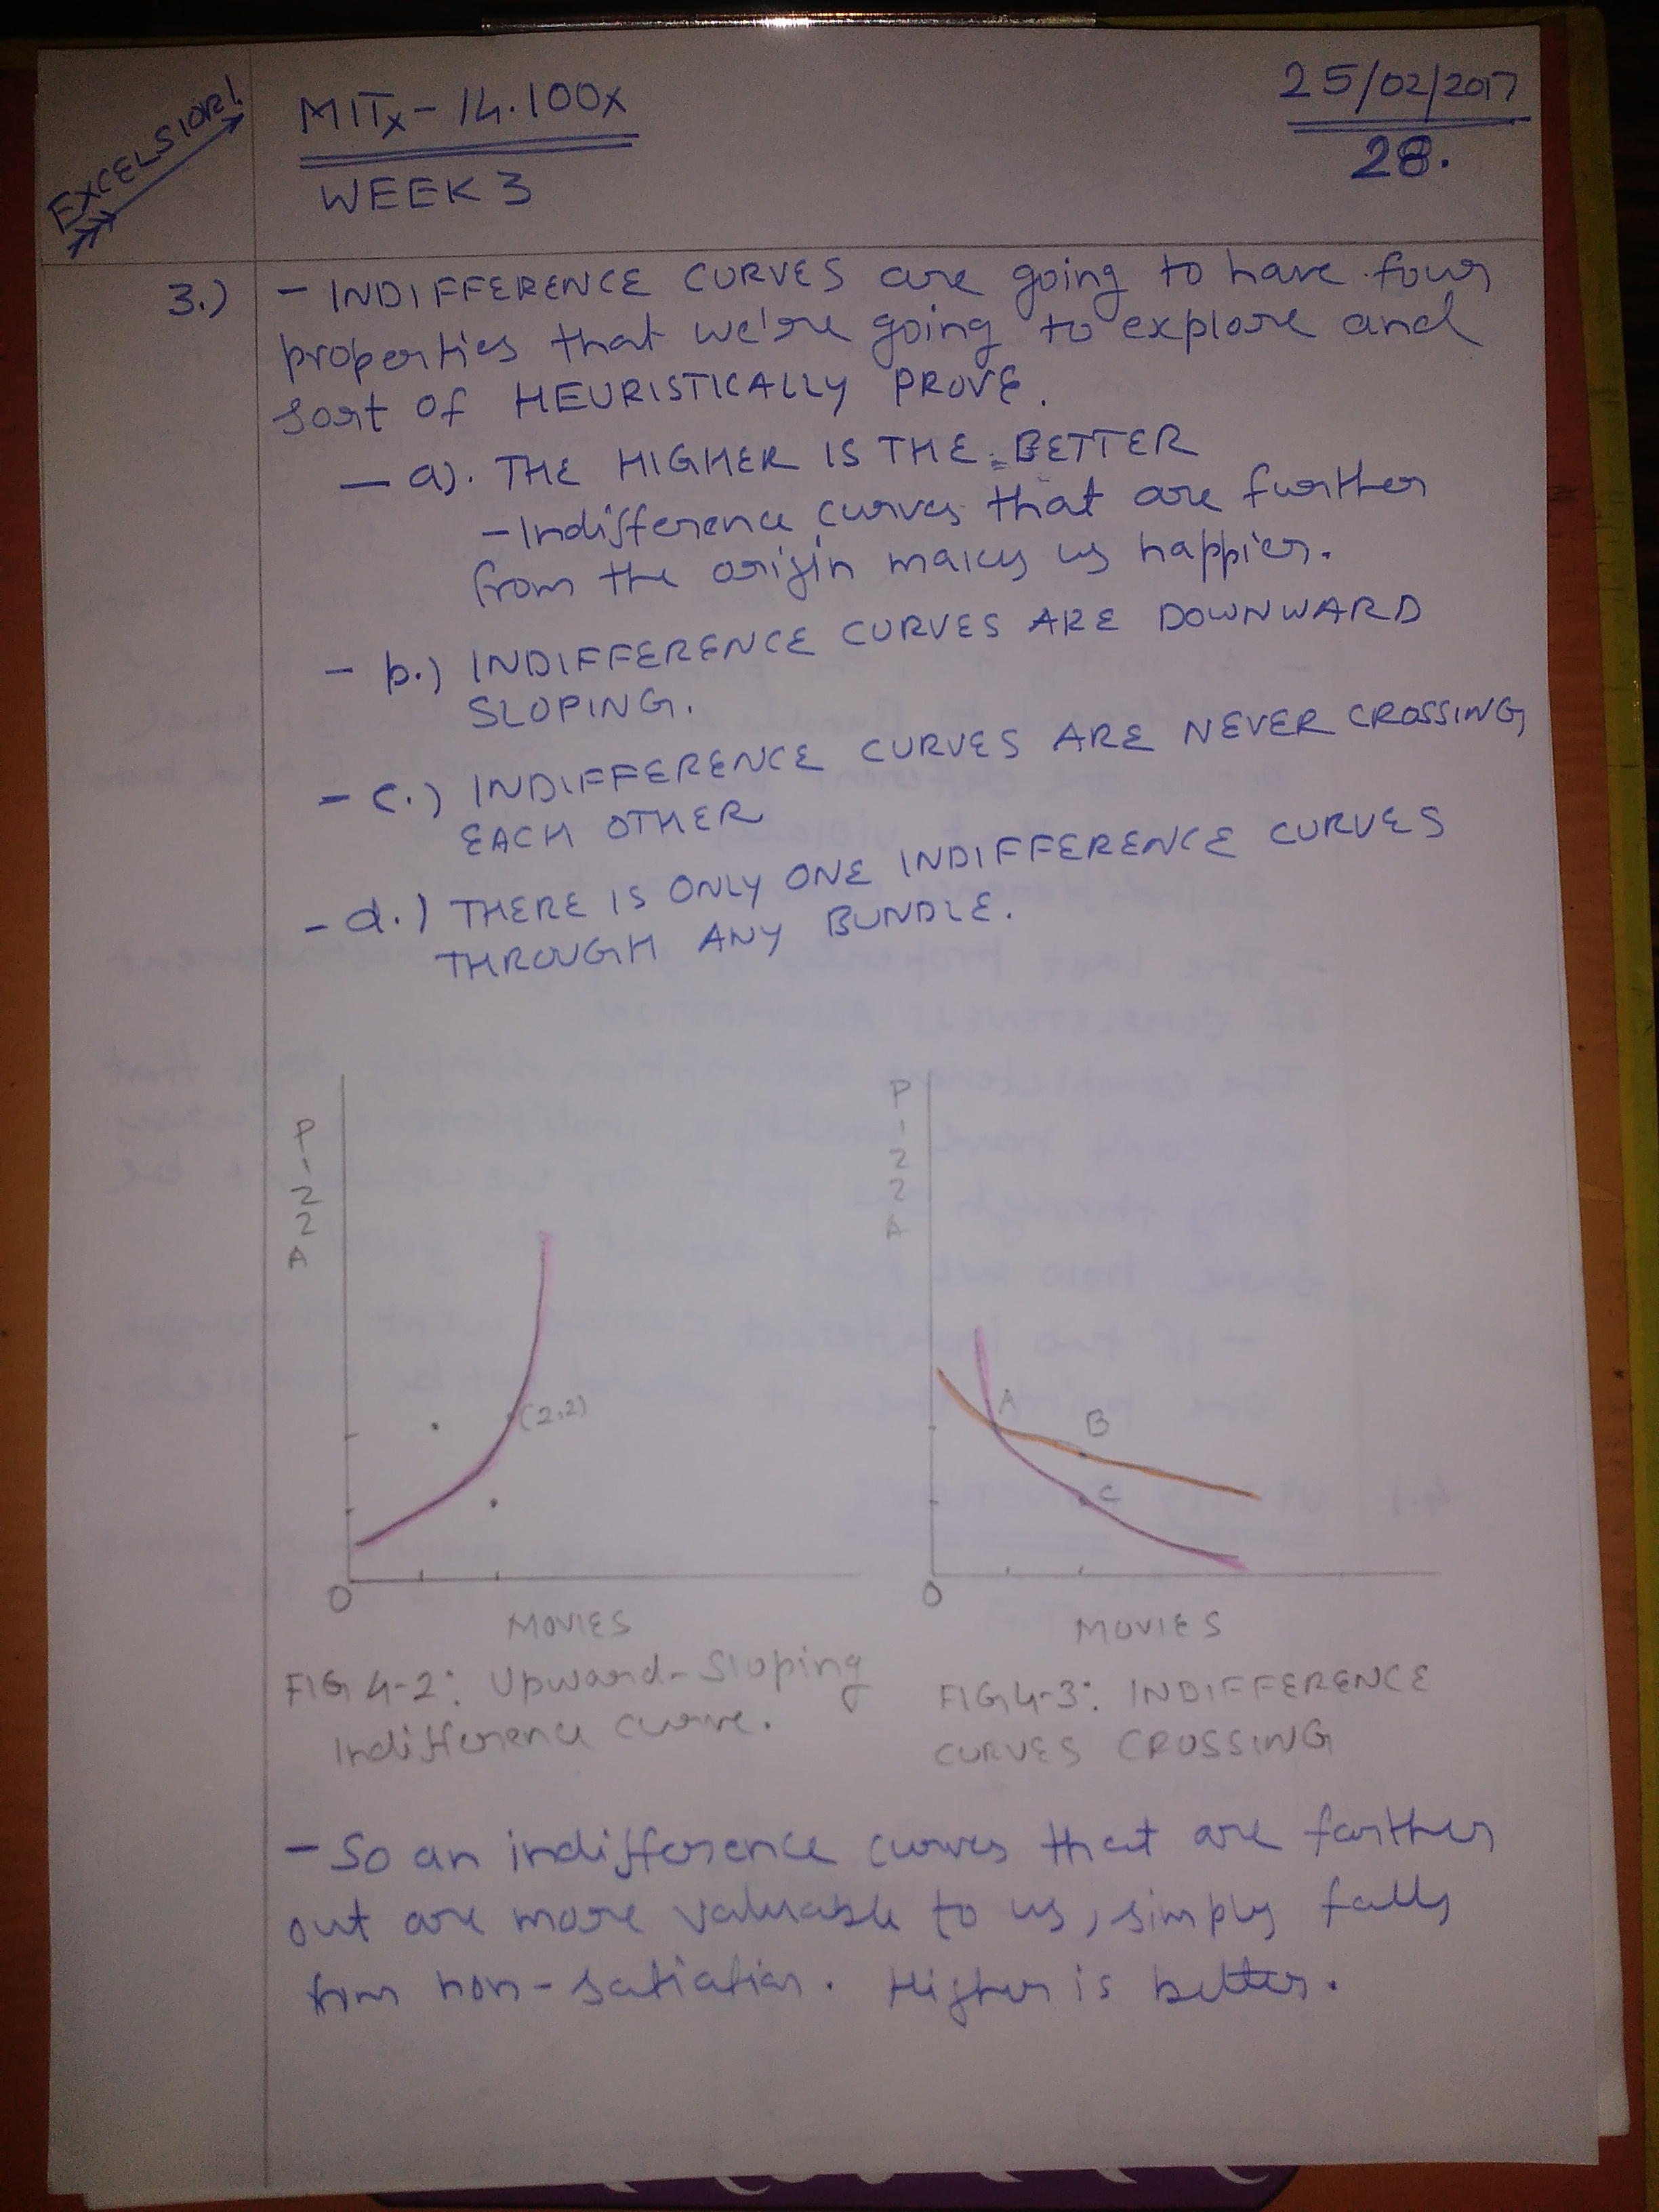 EXCELSIOR!
MITx - 14.100x
25/02/2017
WEEK 3
28.
3.) - INDIFFERENCE CURVES are going to have four
properties that we're going to explore and
sort of HEURISTICALLY PROVE.
- a). THE HIGHER IS THE BETTER
- Indifference curves that are further
from the origin makes us happier.
- b.) INDIFFERENCE CURVES ARE DOWNWARD
SLOPING.
- c.) INDIFFERENCE CURVES ARE NEVER CROSSING
EACH OTHER
- d.) THERE IS ONLY ONE INDIFFERENCE CURVES
THROUGH ANY BUNDLE.
PIZZA
(2,2)
O
MOVIES
FIG 4-2: Upward-Sloping
Indifference curve.
PIZZA
A
B
C
O
MOVIES
FIG 4-3: INDIFFERENCE
CURVES CROSSING
- So an indifference curves that are farther
out are more valuable to us, simply falls
from non-satiation. Higher is better.